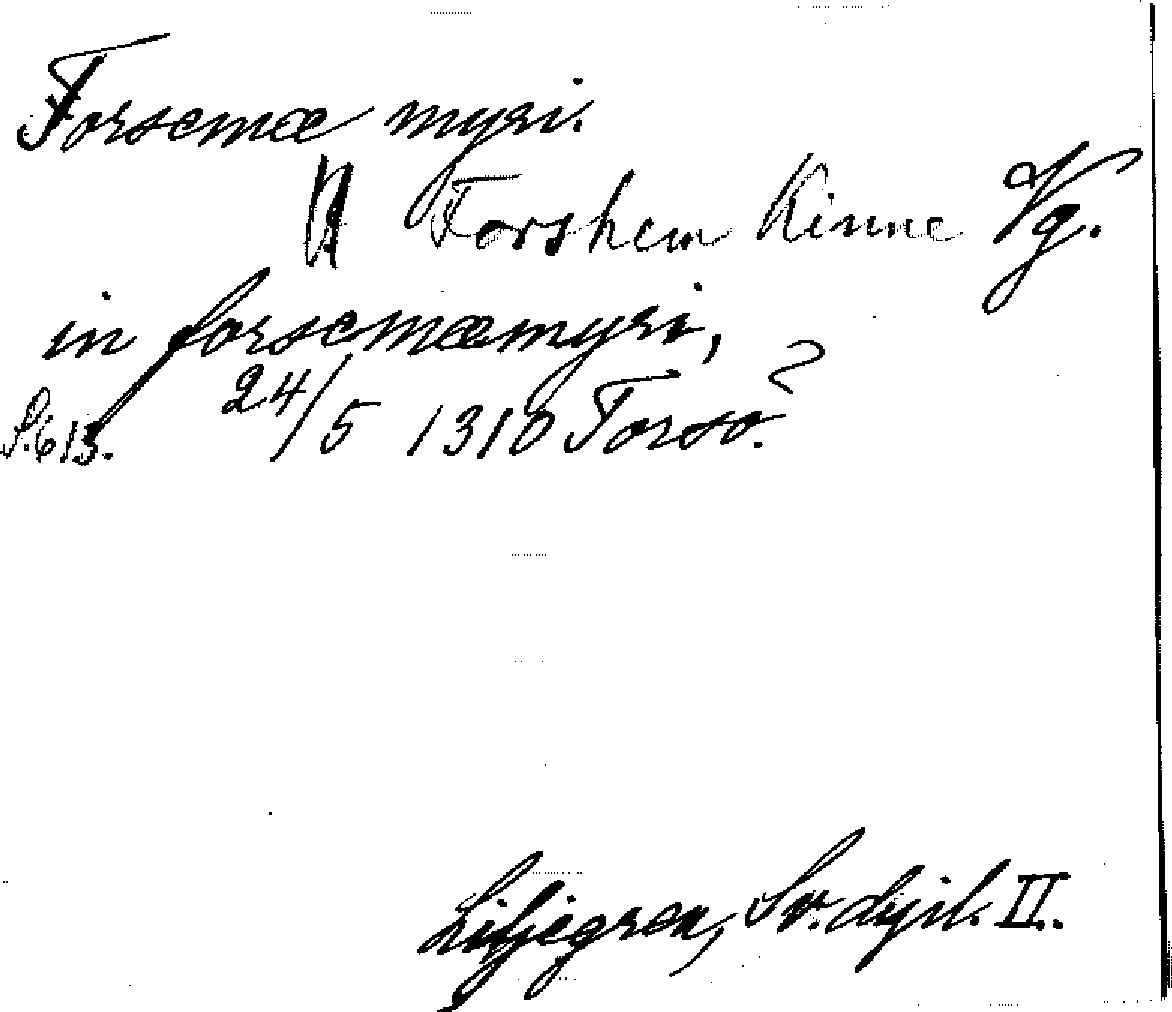 Forsemæ myri.
Forshem Kinne Vg.
in forsemæmyri,
S. 613. 24/5 1310 Torsö?
Liljegren, Sv. dipl. II.